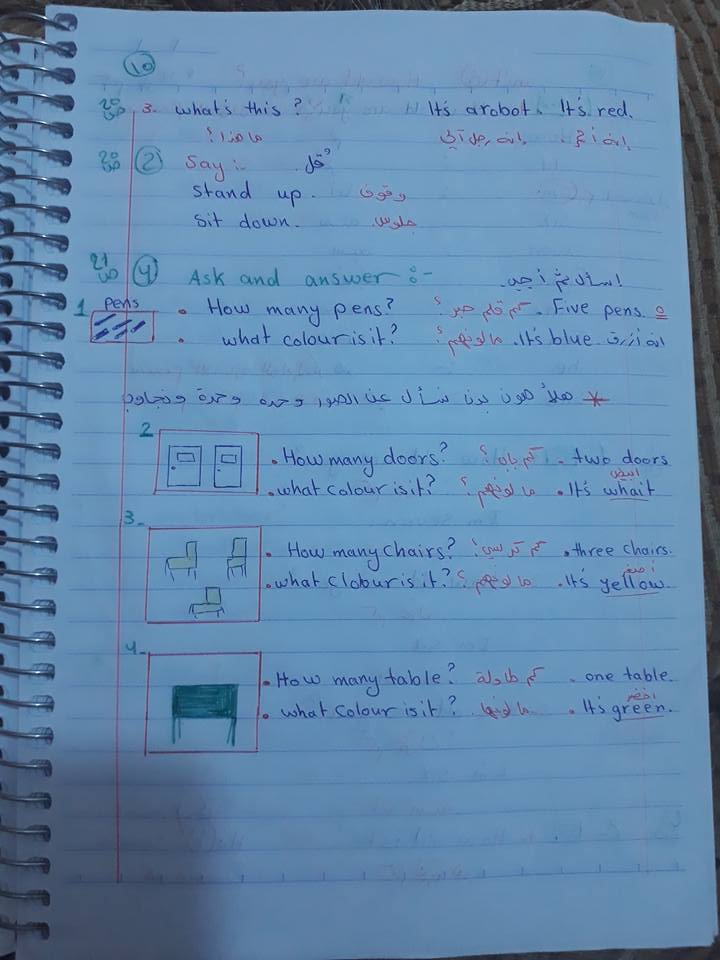 10
ص 20 3. what's this ? It's a robot. It's red.
ما هذا ؟ إنه رجل آلي. إنه أحمر.
ص 20 2 Say : قُل
Stand up. وقوف
Sit down. جلوس
ص 21 4 Ask and answer :- اسأل ثم أجب.
1 pens
• How many pens? كم قلم حبر ؟ . Five pens 5
• what colour is it? ما لونهم ؟ . It's blue إنه أزرق
* هلأ هون بدن نسأل عن الصور وحدة وحدة ونجاوب
2
• How many doors? كم باب ؟ . two doors
• what colour is it? ما لونهم ؟ . It's whait أبيض
3-
• How many chairs? كم كرسي ؟ . three chairs.
• what clobur is it? ما لونهم ؟ . It's yellow. أصفر
4-
• How many table? كم طاولة . one table.
• what colour is it? ما لونها . It's green. أخضر